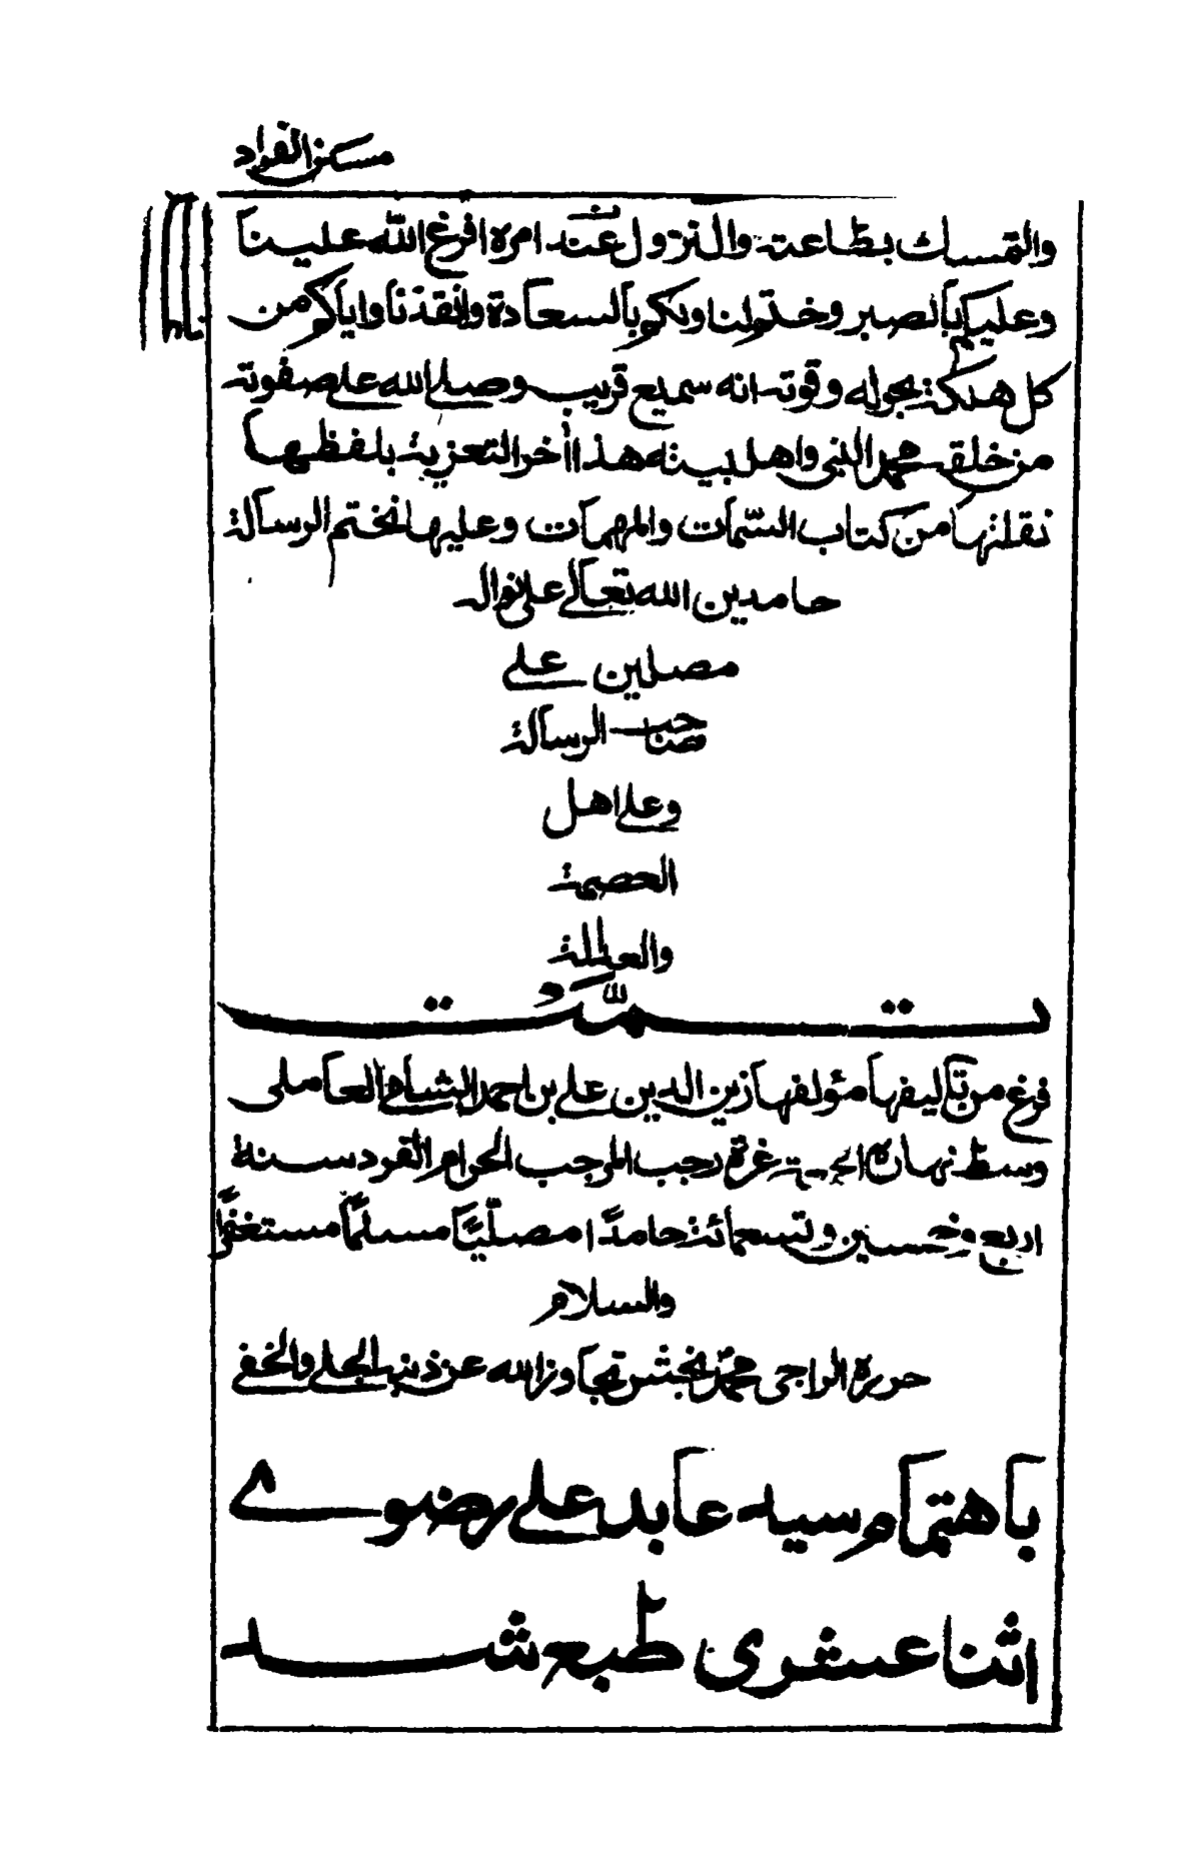 مسكن الفواد
والتمسك بطاعته والنزول عند امره افرغ الله علينا
وعليكم بالصبر وختم لنا ولكم بالسعادة وانقذنا واياكم من
كل هلكة بحوله وقوته انه سميع قريب وصلى الله على صفوته
من خلقه محمد النبي واهل بيته هذا اخر التعزية بلفظها
نقلتها من كتاب التتمات والمهمات وعليها نختم الرسالة
حامدين الله تعالى على نواله
مصلين على
صاحب الرسالة
وعلى اهل
العصمة
والعدالة
تمت
فرغ من تاليفها مؤلفها زين الدين على بن احمد الشامى العاملى
وسط نهار الجمعة غرة رجب المرجب الحرام الفرد سنة
اربع وخمسين وتسعمائة حامدًا مصليًّا مسلمًا مستغفرًا
والسلام
حرره الراجى محمد بخش تجاوز الله عن ذنبه الجلى والخفى
باهتمام سيد عابد على رضوى
اثنا عشرى طبع شد